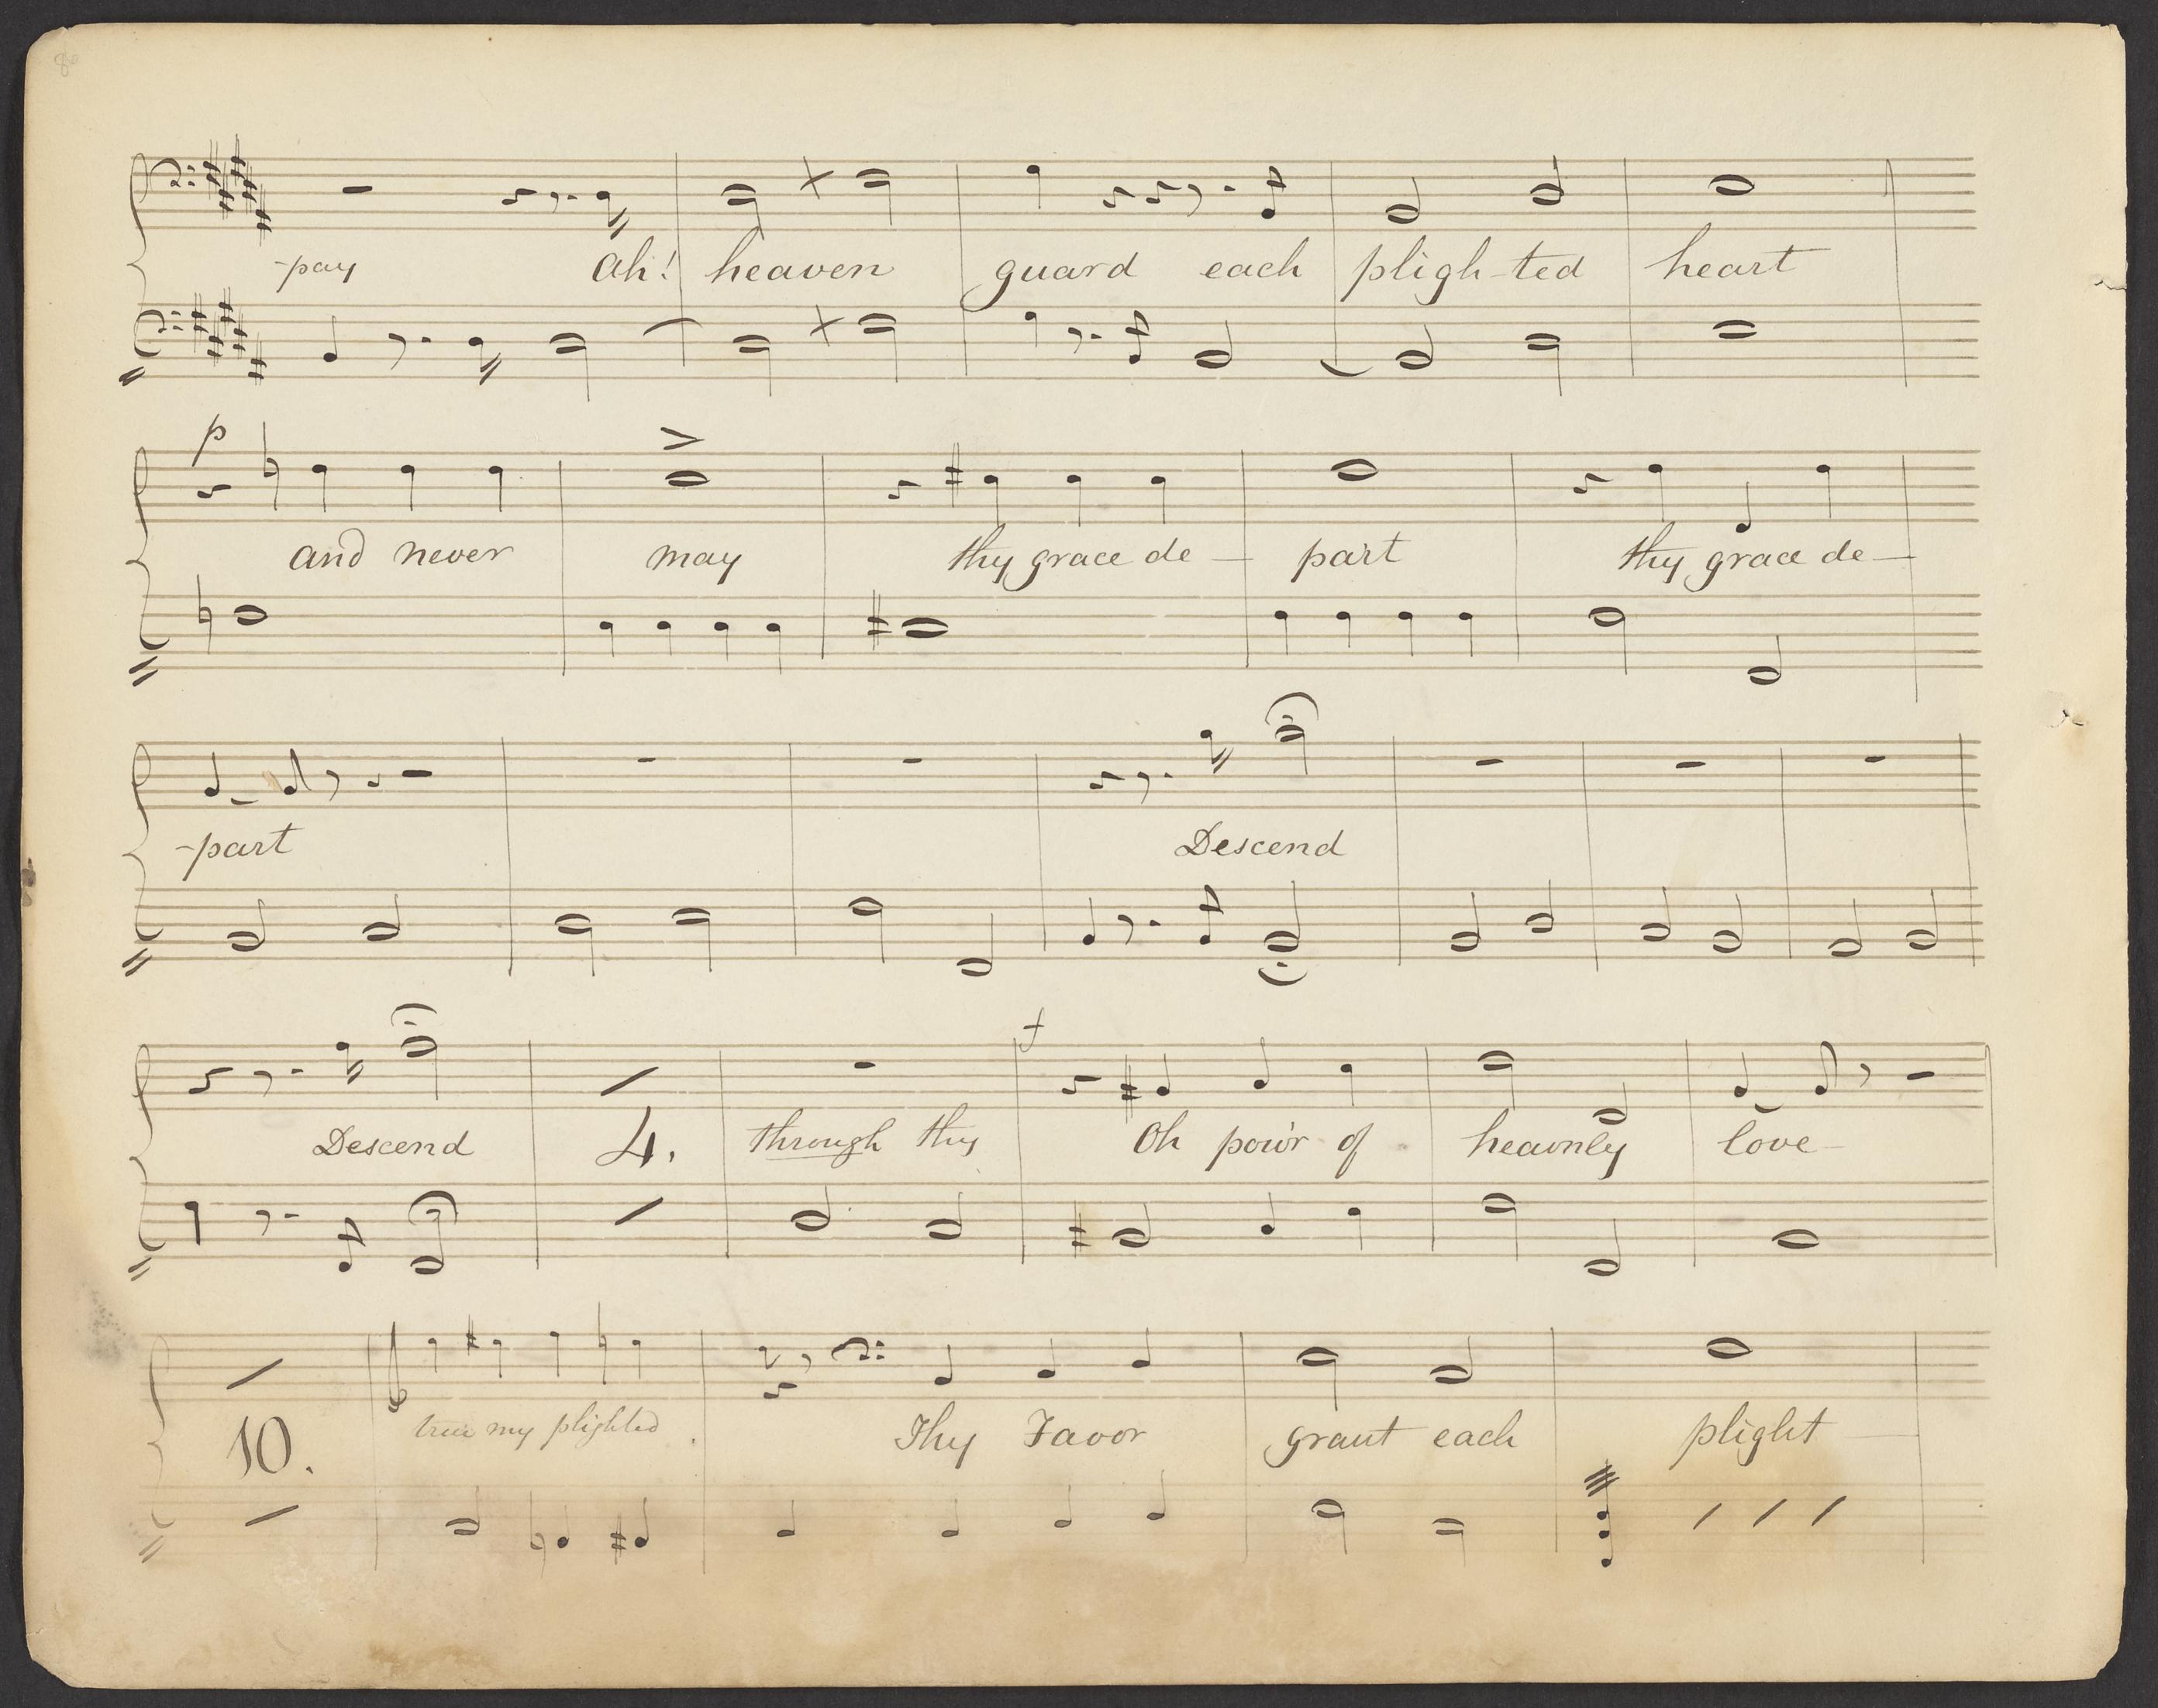 -pay ah! heaven guard each pligh-ted heart
p
and never may thy grace de- part thy grace de-
-part Descend
f
Descend 4. through thy Oh pow'r of heav'nly love-
10. true my plighted Thy Favor grant each plight